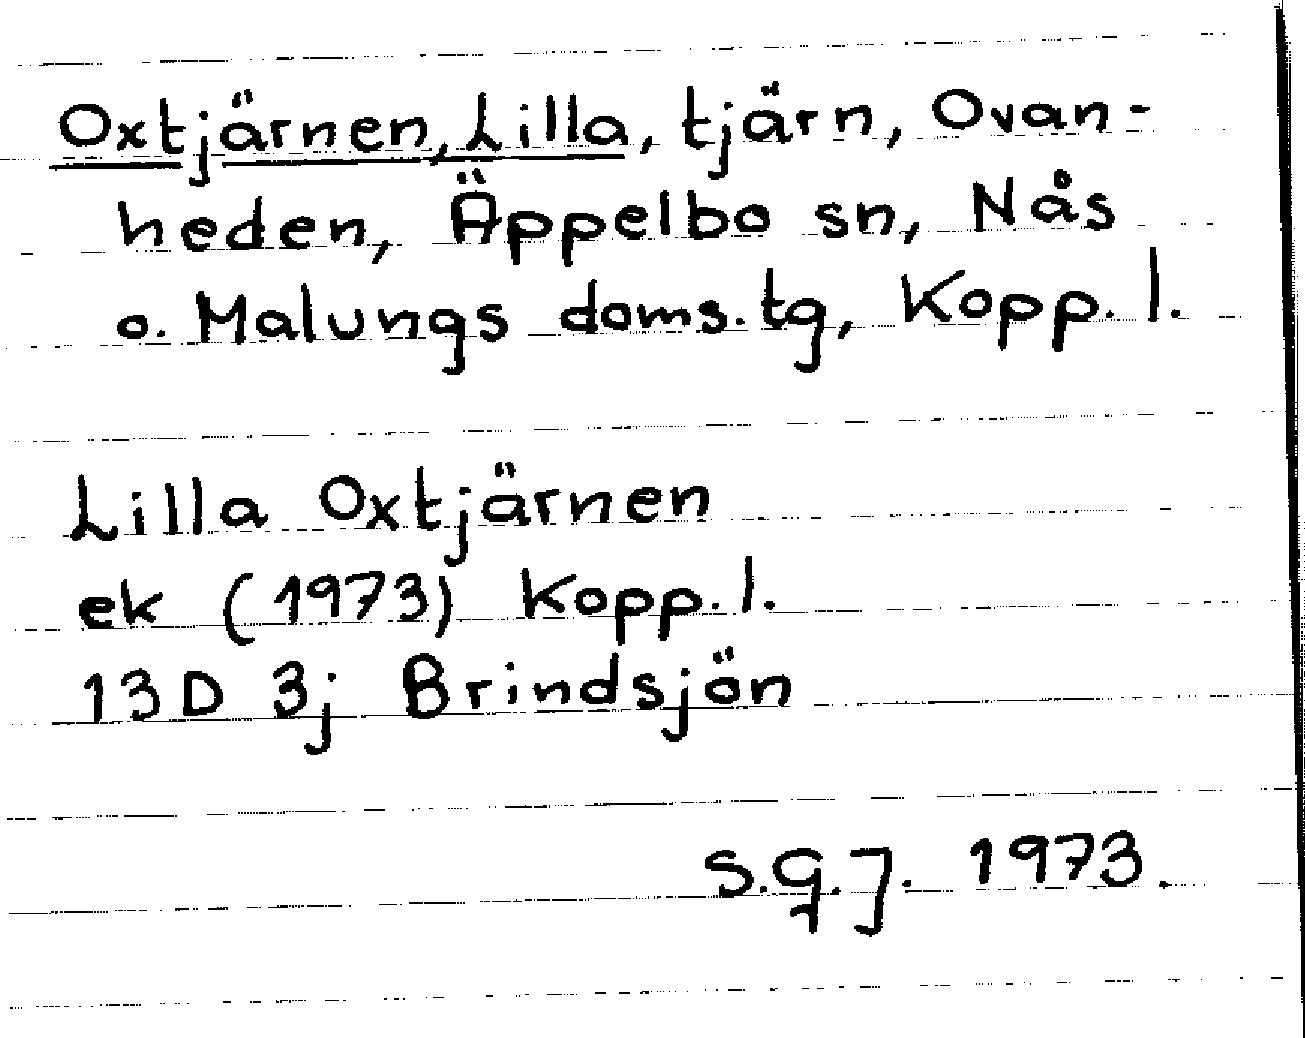 Oxtjärnen, Lilla, tjärn, Ovan-
heden, Äppelbo sn, Nås
o. Malungs doms.tg, Kopp. l.
Lilla Oxtjärnen
ek (1973) Kopp. l.
13D 3j Brindsjön
S.G.J. 1973.